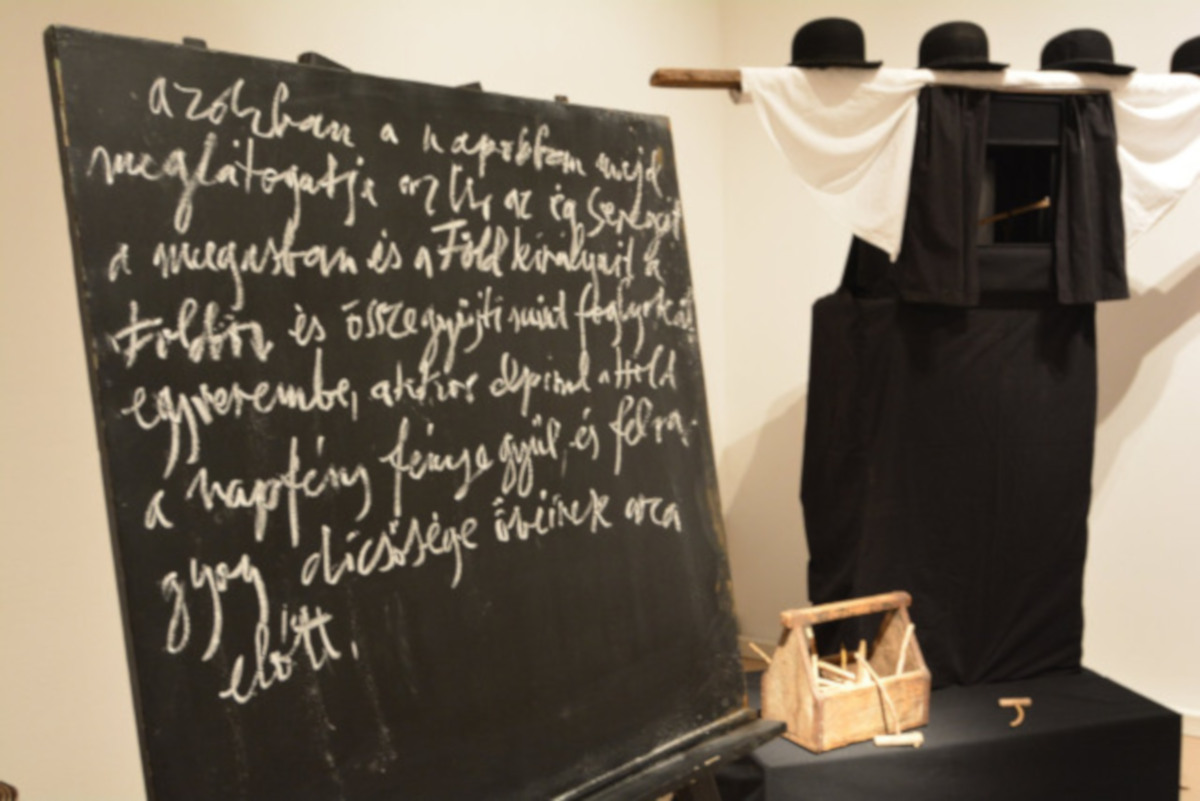 azokban a napokban majd
meglátogatja az Úr, az ég Seregeit
a magasban és a Föld királyait a
Földön és összegyűjti mint foglyokat
egy verembe, akkor elpirul a Hold
a napfény fénye gyűl, és felra-
gyog dicsősége övéinek arca
előtt.